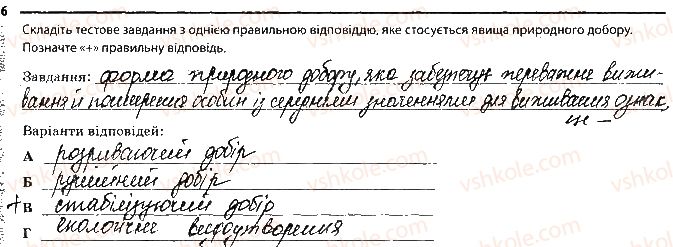 6
Складіть тестове завдання з однією правильною відповіддю, яке стосується явища природного добору.
Позначте «+» правильну відповідь.
Завдання: форма природного добору, яка забезпечує переважне вижи-
вання й поширення особин із середніми значеннями для виживання ознак,
це –
Варіанти відповідей:
А розриваючий добір
Б рушійний добір
+ В стабілізуючий добір
Г екологічне видоутворення